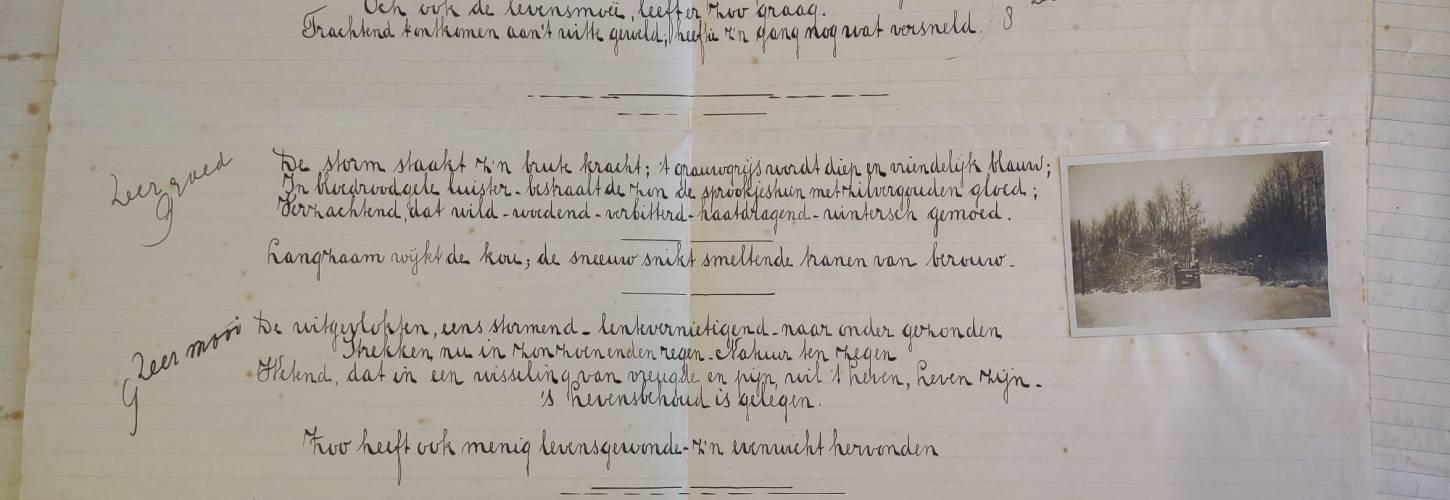 Och ook de levensmoeë, leeft er zoo graag.
Trachtend t'ontkomen aan't witte geweld, heeft ie z'n gang nog wat versneld. 8
Zeer goed
De storm staakt z'n brute kracht; 't grauwgrijs wordt diep en vriendelijk blauw;
In bloedroodgele luister - bestraalt de zon de sprookjestuin met zilvergouden gloed;
Verzachtend, dat wild - woedend - verbitterd - haatdragend - wintersch gemoed.
Langzaam wijkt de kou; de sneeuw snikt smeltende tranen van berouw.
Zeer mooi
De uitgeslokten, eens stormend - lentevernietigend - naar onder gezonden
Strekken nu in zonzoenenden regen - Natuur ten zegen
Wetend, dat in een wisseling van vreugde en pijn, wil 't Leven, Leven zijn -
's Levensbehoud is gelegen.
Zoo heeft ook menig levensgewonde - z'n evenwicht hervonden